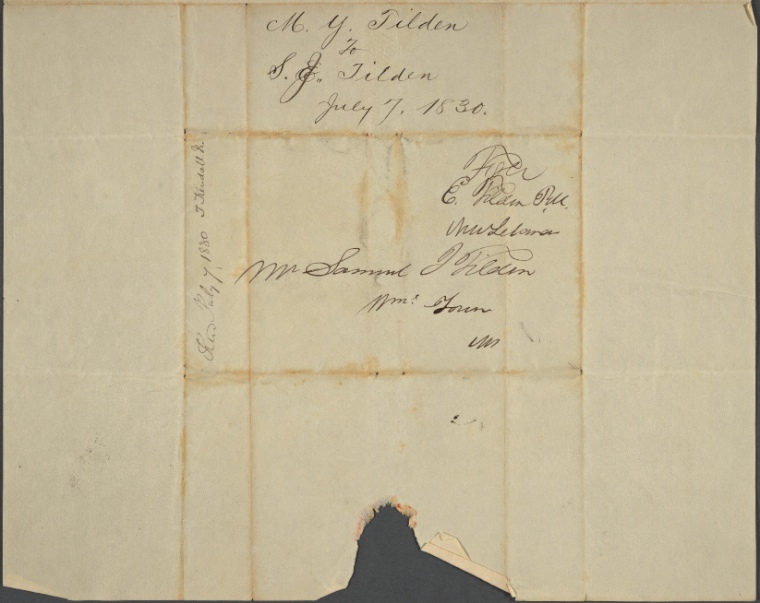 M. Y. Tilden
To
S. J. Tilden
July 7, 1830.
Free
E. Tilden P.M.
New Lebanon
Mr Samuel J Tilden
Wms Town
Ms
July 7, 1830 T Kendall Jr.